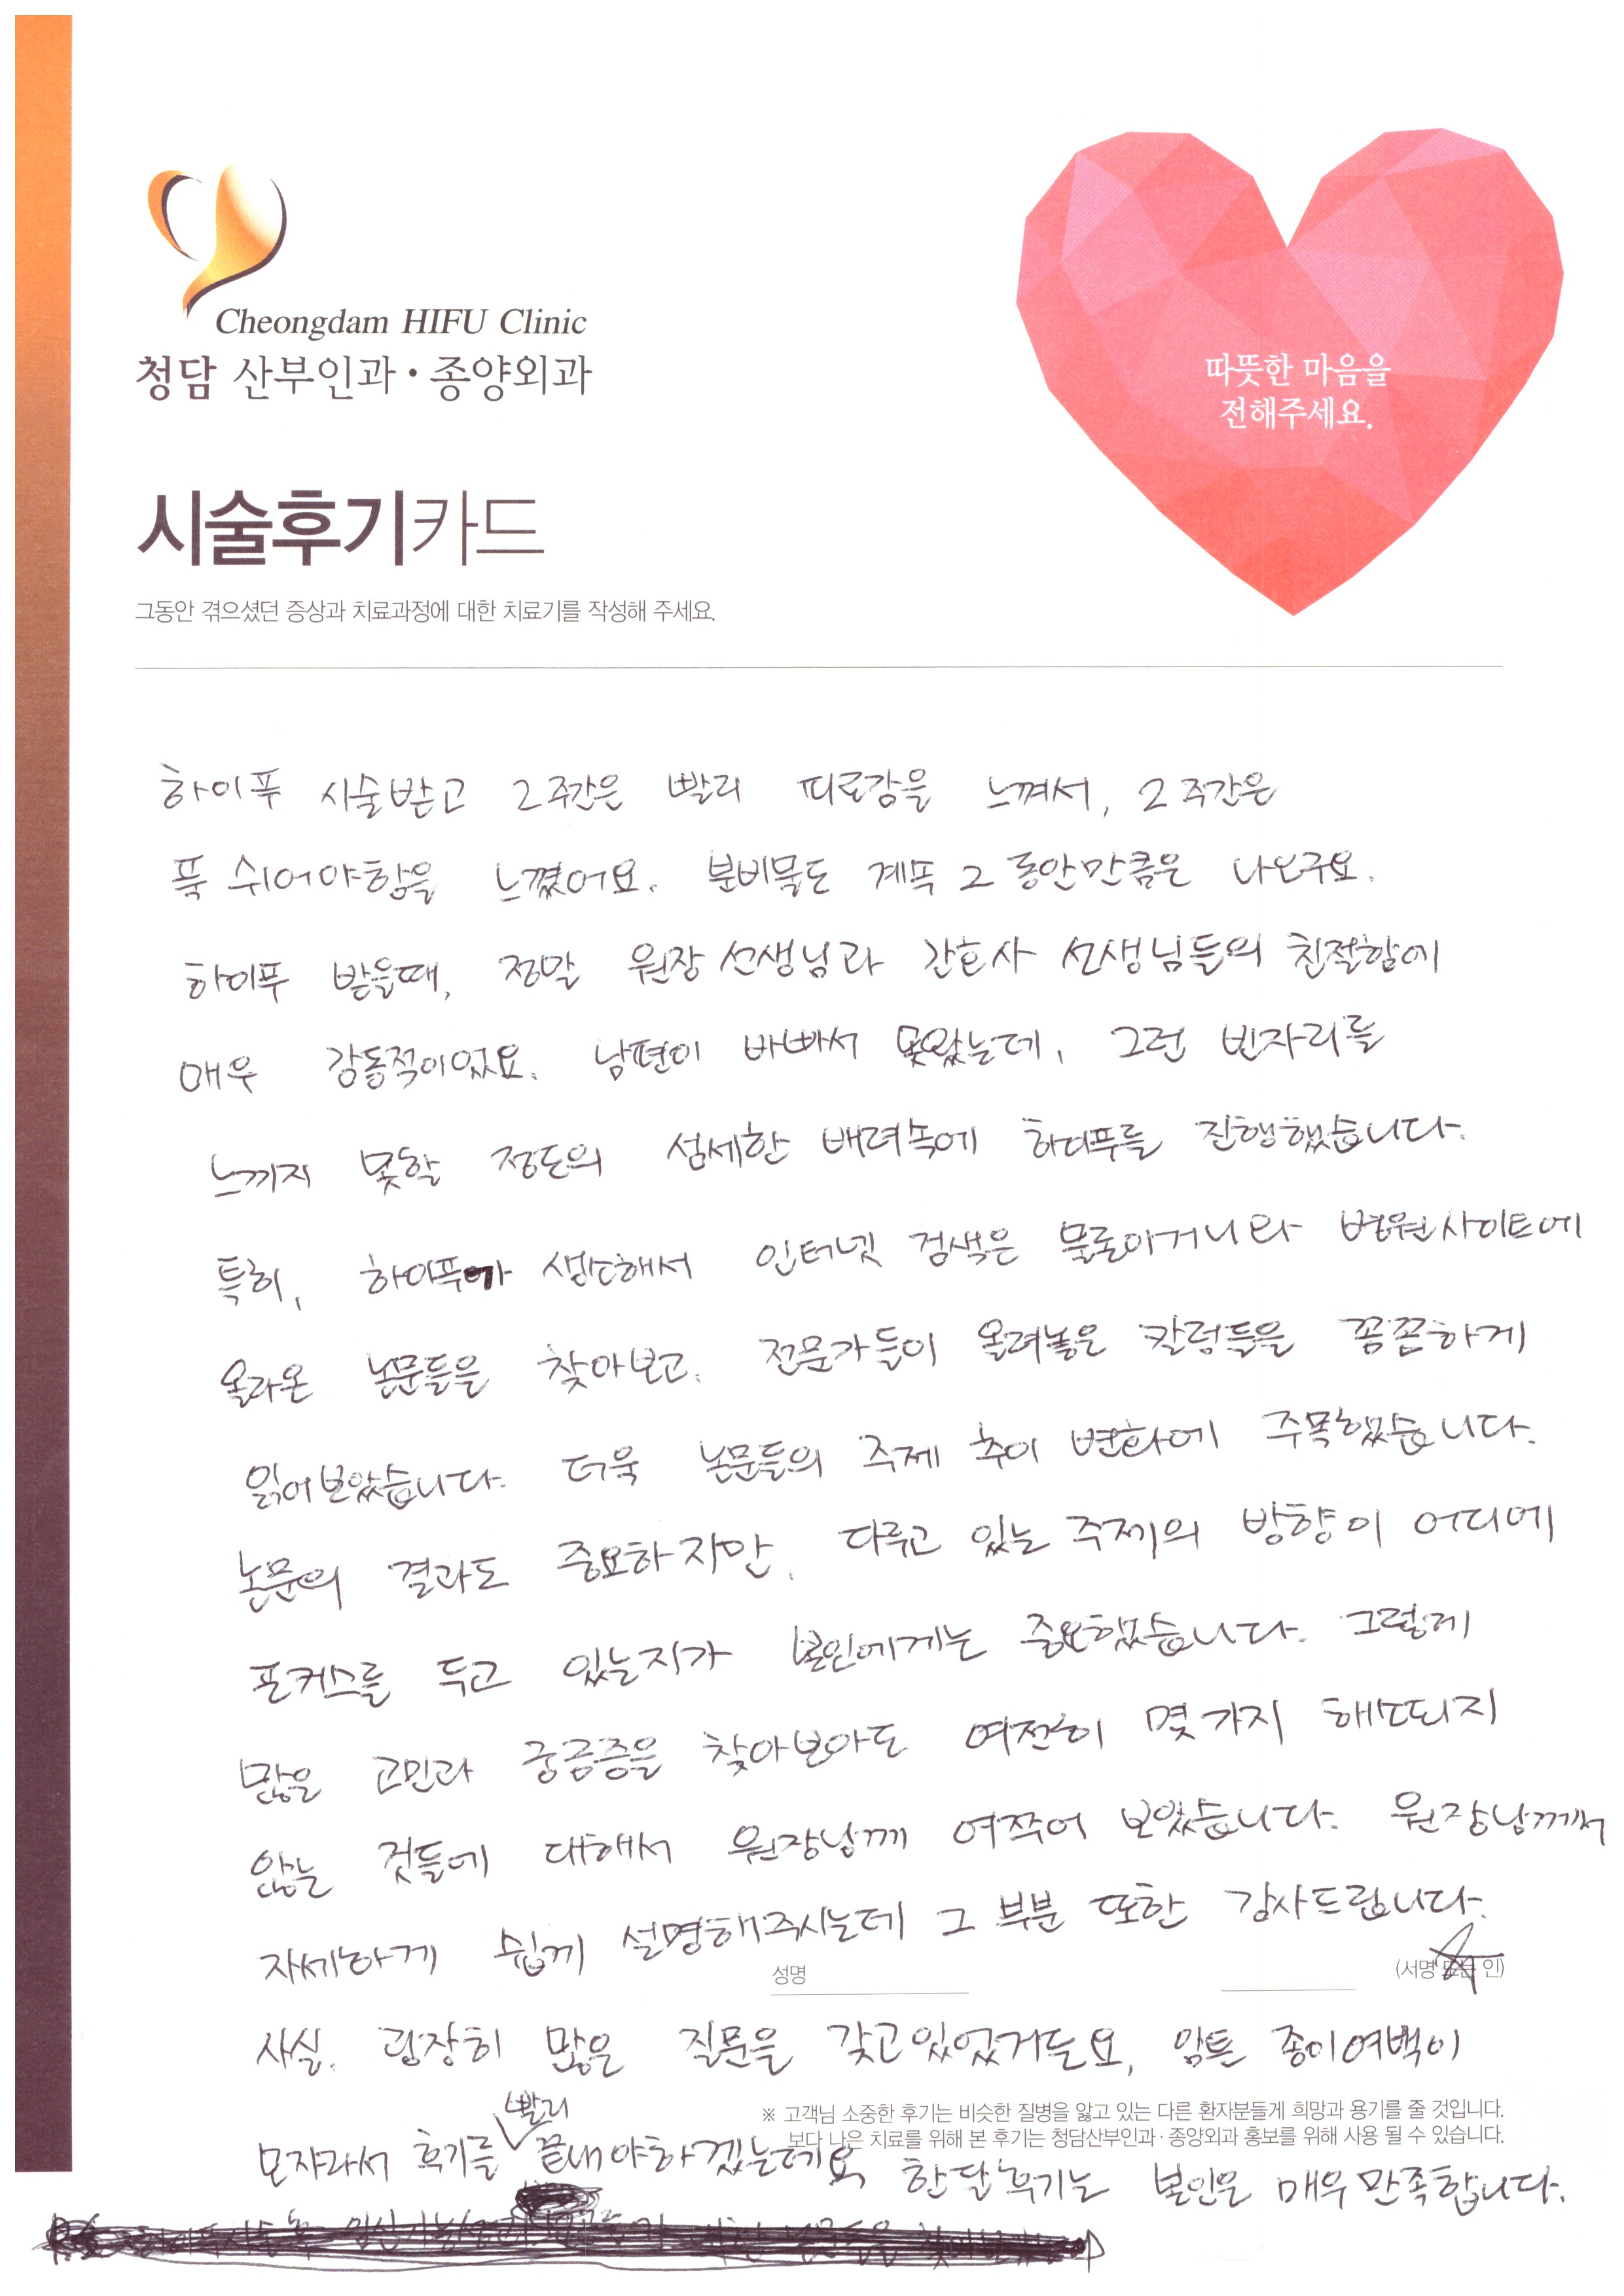 Cheongdam HIFU Clinic
청담 산부인과·종양외과
따뜻한 마음을
전해주세요.
시술후기카드
그동안 겪으셨던 증상과 치료과정에 대한 치료기를 작성해 주세요.
하이푸 시술받고 2주간은 빨리 피로감을 느껴서, 2주간은
푹 쉬어야함을 느꼈어요. 분비물도 계속 그 동안만큼은 나오구요.
하이푸 받을때, 정말 원장선생님과 간호사 선생님들의 친절함에
매우 감동적이었요. 남편이 바빠서 못왔는데, 그런 빈자리를
느끼지 못할 정도의 섬세한 배려속에 하이푸를 진행했습니다.
특히, 하이푸가 생소해서 인터넷 검색은 물론이거니와 병원사이트에
올라온 논문들을 찾아보고, 전문가들이 올려놓은 칼럼들을 꼼꼼하게
읽어보았습니다. 더욱 논문들의 주제 추이 변화에 주목했습니다.
논문의 결과도 중요하지만, 다루고 있는 주제의 방향이 어디에
포커스를 두고 있는지가 본인에게는 중요했습니다. 그렇게
많은 고민과 궁금증을 찾아보아도 여전히 몇가지 해소되지
않는 것들에 대해서 원장님께 여쭈어 보았습니다. 원장님께서
자세하게 쉽게 설명해주시는데 그 부분 또한 감사드립니다.
성명 (서명 또는 인)
사실, 굉장히 많은 질문을 갖고있었거든요, 암튼 종이여백이
빨리
※ 고객님 소중한 후기는 비슷한 질병을 앓고 있는 다른 환자분들게 희망과 용기를 줄 것입니다.
보다 나은 치료를 위해 본 후기는 청담산부인과·종양외과 홍보를 위해 사용 될 수 있습니다.
모자라서 후기를 끝내야하겠는데요, 한달후기는 본인은 매우 만족합니다.